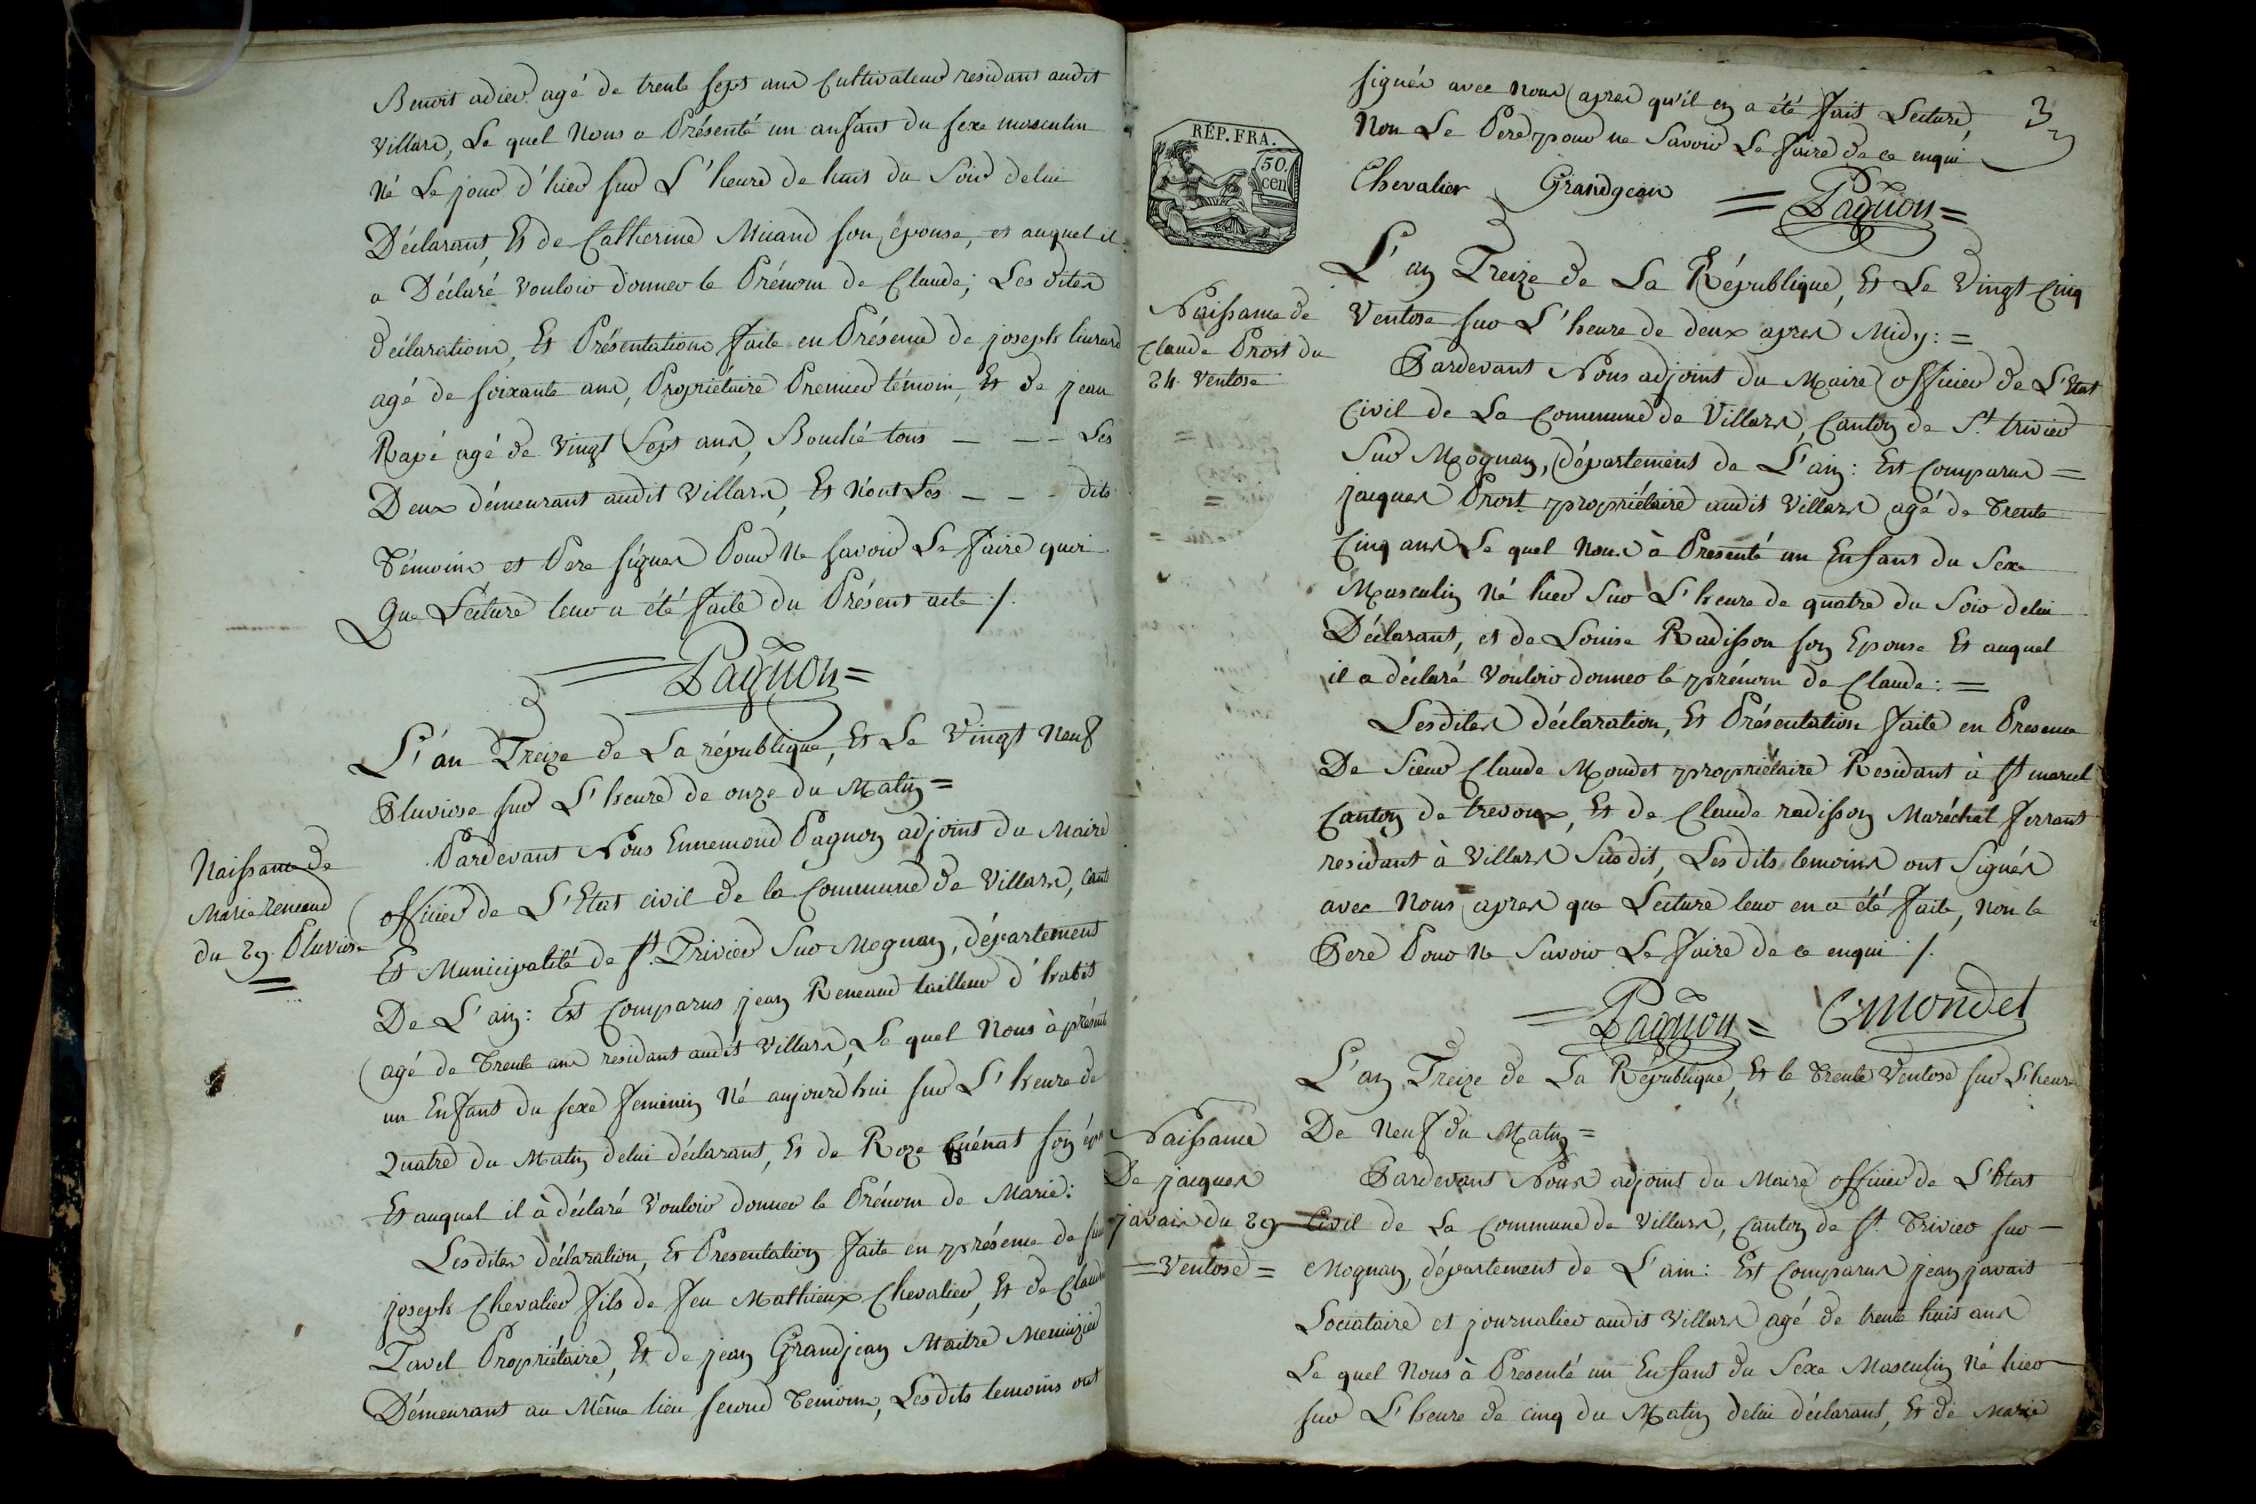 Benoit adier agé de trente sept ans Cultivateur residant audit
Villars, Le quel Nous a Présenté un anfant du sexe masculin
Né Le jour d'hier sur L'heure de huit du Soir delui
Déclarant, Et de Catherine Micaud son épouse, et auquel il
a Déclaré vouloir donner le Prénom de Claude; Les dites
déclarations, Et Présentations faite en Présence de joseph
agé de soixante ans, Propriétaire Premier témoin, Et de jean
Rapé agé de Vingt Sept ans, Bouché tous - - - Les
Deux démeurant audit Villars, Et N'ont Les - - - dits
Témoins et Pere signer Pour Ne savoir Le faire
Que Lécture leur a été faite du Présent acte ./.
Pagnon
L'an Treize de La république, Et Le Vingt Neuf
Pluviose sur L'heure de onze du Matin =
Naissance de
Marie Reneaud
du 29. Pluviose
Pardevant Nous Ennemond Pagnon adjoint du Maire
officier de L'Etat civil de la Commune de Villars, Cant
Et Municipalité de St. Trivier Sur Mognan, département
De L'ain: Est Comparus jean Reneaud tailleur d'habit
agé de Trente ans residant audit Villars, Le quel Nous à présenté
un Enfant du sexe feminin Né aujourd'hui sur L'heure de
Quatre du Matin delui déclarant, Et de Roze Guénat son ép
Et auquel il à déclaré Vouloir donner le Prénom de Marie:
Lesdites déclaration, Et Presentation faite en présence de
joseph Chevalier fils de feu Mathieux Chevalier, Et de Claude
Tavel Propriétaire, Et de jean Grandjean Maitre Menuizier
Démeurant au Même lieu second Temoins, Lesdits temoins ont
3
signés avec Nous apres qu'il en a été fait Lecture,
Non Le Pere pour ne Savoir Le faire de ce enqui
Chevalier Grandgean Pagnon
REP. FRA.
50.
cen
L'an Treize de La République, Et Le Vingt Cinq
Ventose sur L'heure de deux apres Midy: =
Naissance de
Claude Prost du
24. Ventose
Pardevant Nous adjoint du Maire officier de L'Etat
Civil de La Commune de Villars, Canton de St. trivier
Sur Mognan, département de L'ain: Est Comparus =
jaques Prost propriétaire audit Villars agé de Trente
Cinq ans Le quel Nous à Presenté un Enfant du Sexe
Masculin Né hier Sur L'heure de quatre du Soir delui
Déclarant, et de Louise Radisson son Epouse Et auquel
il a déclaré Vouloir donner le prénom de Claude: =
Lesdites déclaration, Et Présentation faite en Presence
De Sieur Claude Mondet propriétaire Residant à St marcel
Canton de trevoux, Et de Claude radisson Maréchal ferrant
residant à Villars Susdit, Lesdits temoins ont Signés
avec Nous apres que Lecture leur en a été faite, Non le
Pere Pour Ne Savoir Le faire de ce enqui ./.
Pagnon = Cmondet
L'an Treize de La République, Et le Trente Ventose sur L'heure
De Neuf du Matin =
Naissance
De jacques
javais du 29
= Ventose =
Pardevant Nous adjoint du Maire officier de L'Etat
Civil de La Commune de Villars, Canton de St. Trivier sur
Mognan, département de L'ain: Est Comparus jean javais
Locataire et journalier audit Villars agé de trente huit ans
Le quel Nous à Presenté un Enfant du Sexe Masculin Né hier
sur L'heure de cinq du Matin delui déclarant, Et de Marie